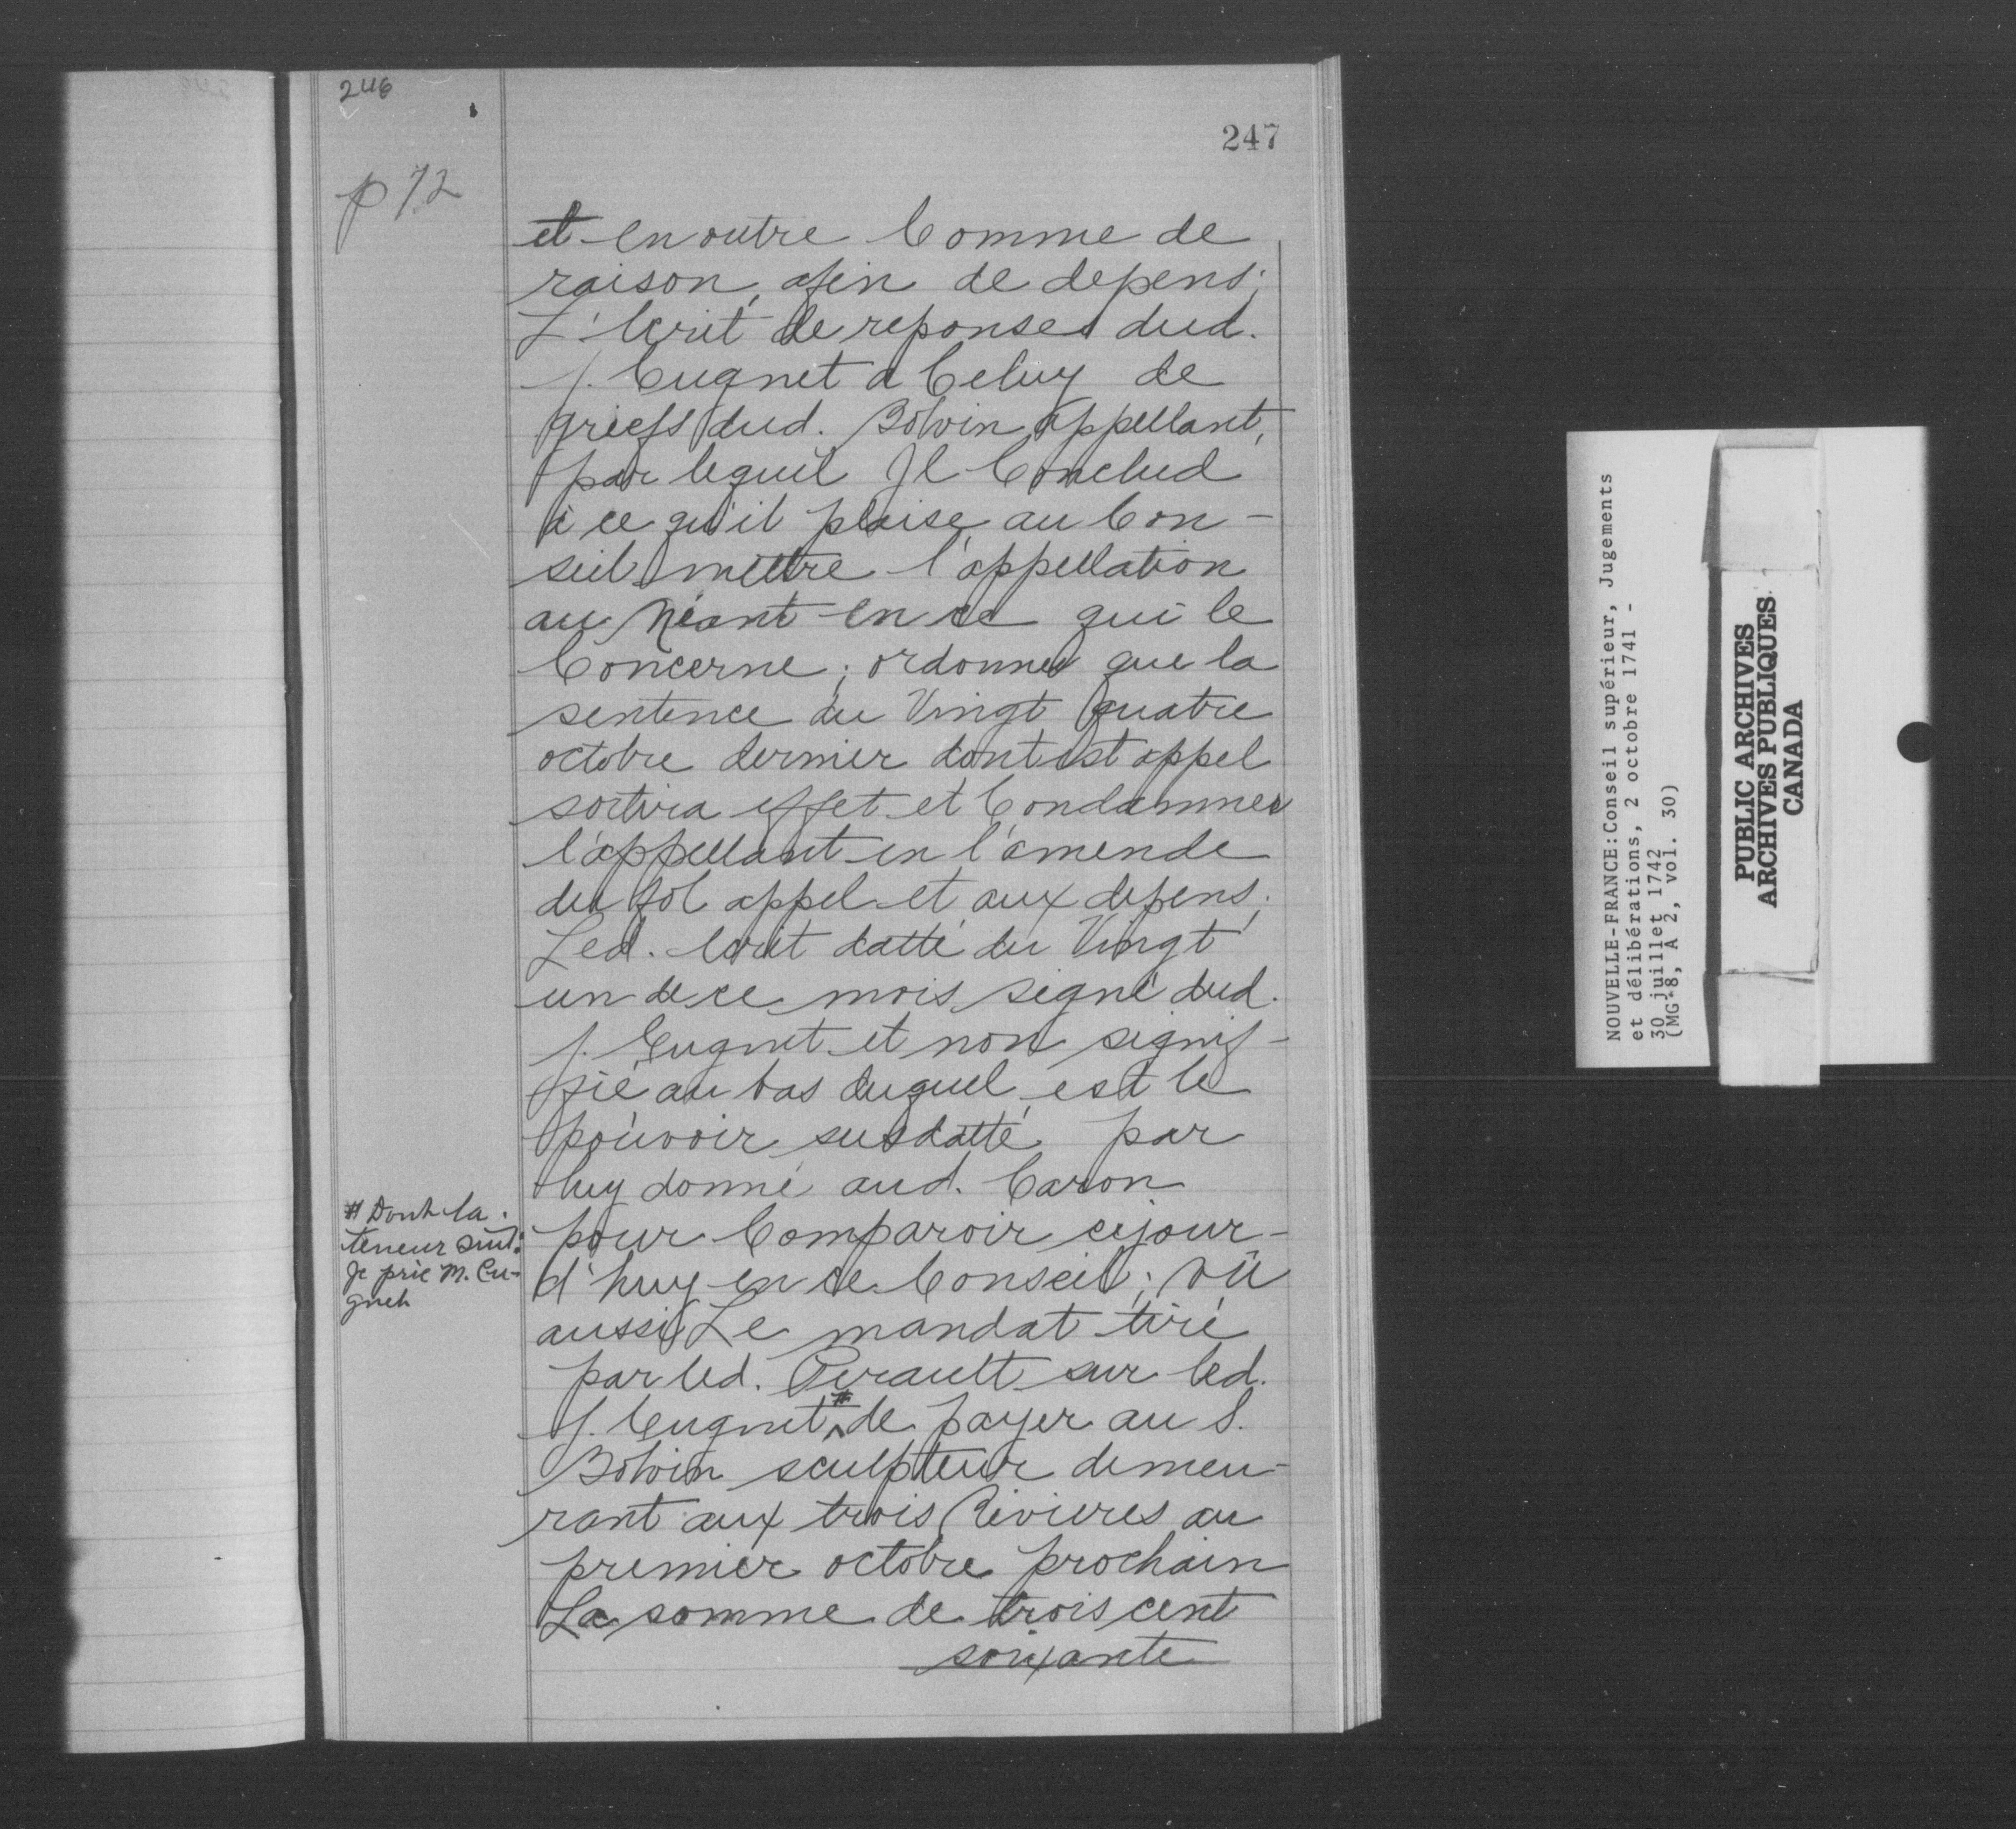 246
247
p 72
et en outre Comme de
raison, afin de depens;
L'Ecrit de reponses dud.
s. Cugnet a Celuy de
griefs dud. Bolvin appellant,
par lequel Jl Conclud
à ce qu'il plaise au Con-
seil mettre l'appellation
au Néant en ce qui le
Concerne; ordonner que la
sentence du Vingt quatre
octobre dernier dont est appel
sortira effet et Condamner
l'appellant en l'amende
du fol appel et aux depens;
Led. Ecrit datté du Vingt
un de ce mois signé dud.
s. Cugnet et non signif-
fié au bas duquel est le
pouvoir susdatté par
luy donné aud. Caron
pour Comparoir cejour-
d'huy en ce Conseil; Vû
aussi Le mandat tiré
par led. Perault sur led.
s. Cugnet # de payer au S.
Bolvin sculpteur demeu-
rant aux trois Rivieres au
premier octobre prochain
La somme de trois cent
soixante
# Dont la
teneur suit:
Je prie M. Cu-
gnet
NOUVELLE-FRANCE:Conseil supérieur, Jugements
et délibérations, 2 octobre 1741 -
30 juillet 1742
(MG 8, A 2, vol. 30)
PUBLIC ARCHIVES
ARCHIVES PUBLIQUES
CANADA